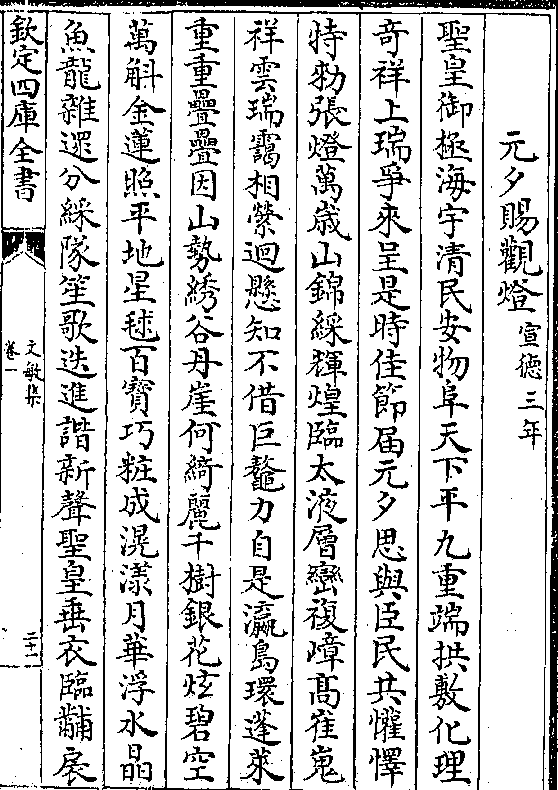 元夕賜觀燈宣德三年
聖皇御極海宇清民安物阜天下平九重端拱敷化理
奇祥上瑞爭來呈是時佳節届元夕思與臣民共懽懌
特勑張燈萬歲山錦綵輝煌臨太液層巒複嶂髙崔嵬
祥雲瑞靄相縈迴懸知不借巨鼇力自是瀛島環蓬萊
重重疊疊因山勢綉谷丹崖何綺麗千樹銀花炫碧空
萬斛金蓮照平地星毬百寶巧粧成滉漾月華浮水晶
魚龍雜遝分綵隊笙歌迭進諧新聲聖皇垂衣臨黼扆
欽定四庫全書
文敏集
卷一
二十一